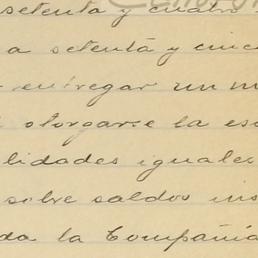 setenta y cuatro
a setenta y cinco
entregar un m
otorgarse la es
lidades iguales
sobre saldos ins
da la Compañía